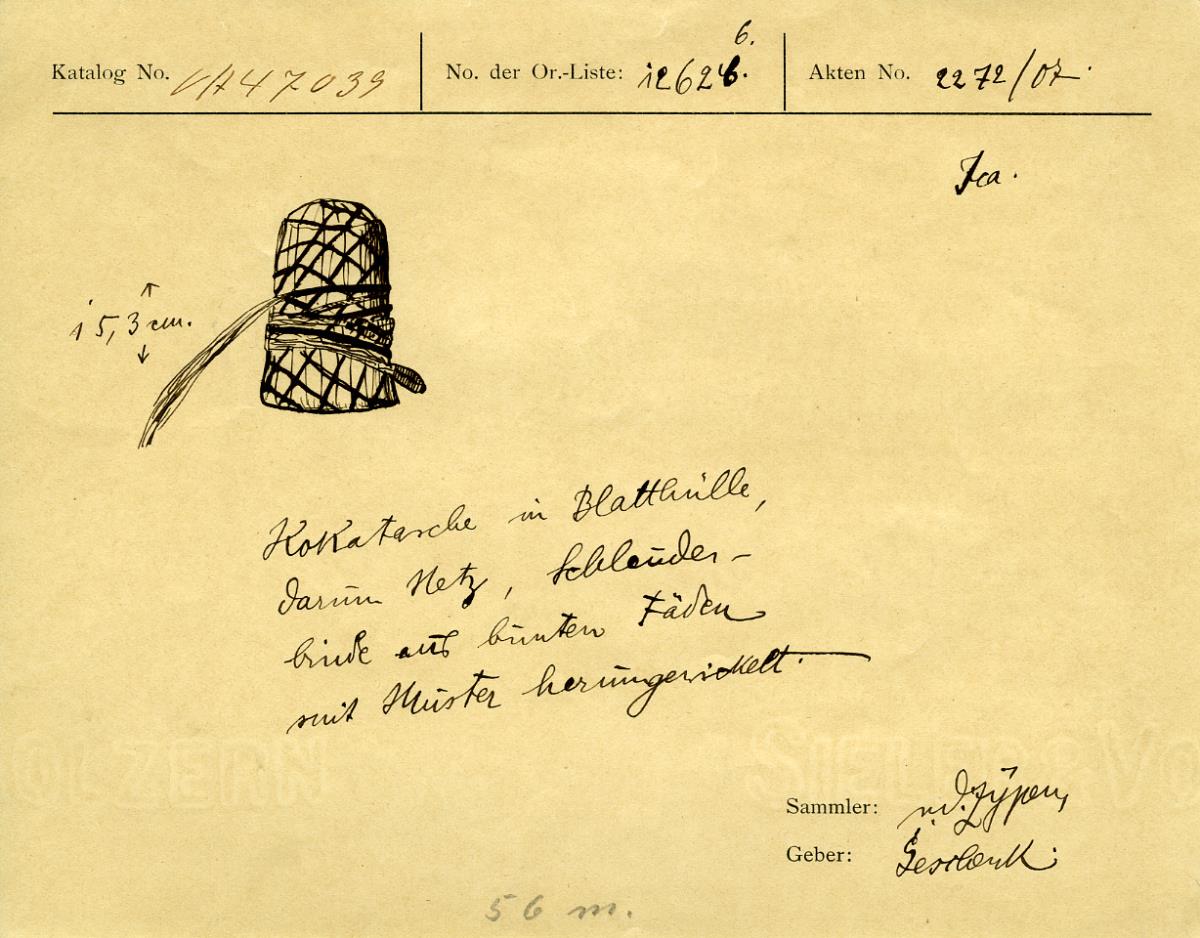 Katalog No. VA 47039
No. der Or.-Liste: 12626.
6.
Akten No. 2272/07.
Ica.
15,3 cm.
Kokatasche in Blatthülle,
darum Netz, Schleuder-
binde aus bunten Fäden
mit Muster herumgewickelt.
OLZERN
SIELER & VO
Sammler: v. d. Zÿpen,
Geber: Geschenk.
56 m.